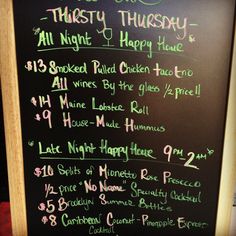 THIRSTY THURSDAY
All Night Happy Hour
$13 Smoked Pulled Chicken taco trio
All wines By the glass 1/2 price!!
$14 Maine Lobster Roll
$9 House-Made Hummus
Late Night Happy Hour 9PM-2AM
$10 Splits of Mionetto Rose Prosecco
1/2 price "No Name" Specialty Cocktail
$5 Brooklyn Summer Bottles
$8 Caribbean Coconut-Pineapple Express
Cocktail